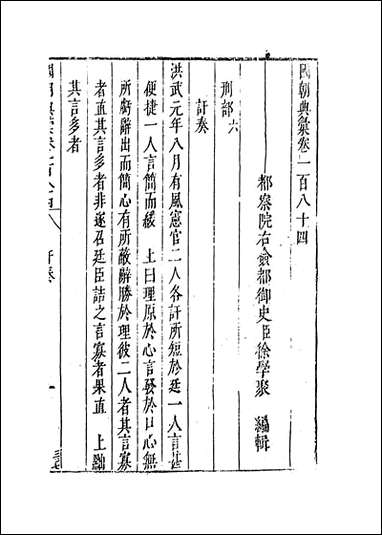 國朝典彙卷一百八十四
都察院右僉都御史臣徐學聚 編輯
刑部六
訐奏
洪武元年八月有風憲官二人各訐所短於廷一人言甚
便捷一人言簡而緩 上曰理原於心言發於口心無
所虧辭出而簡心有所蔽辭勝於理彼二人者其言寡
者直其言多者非遂召廷臣詰之言寡者果直 上黜
其言多者
國朝典彙卷一百八十四 訐奏 一